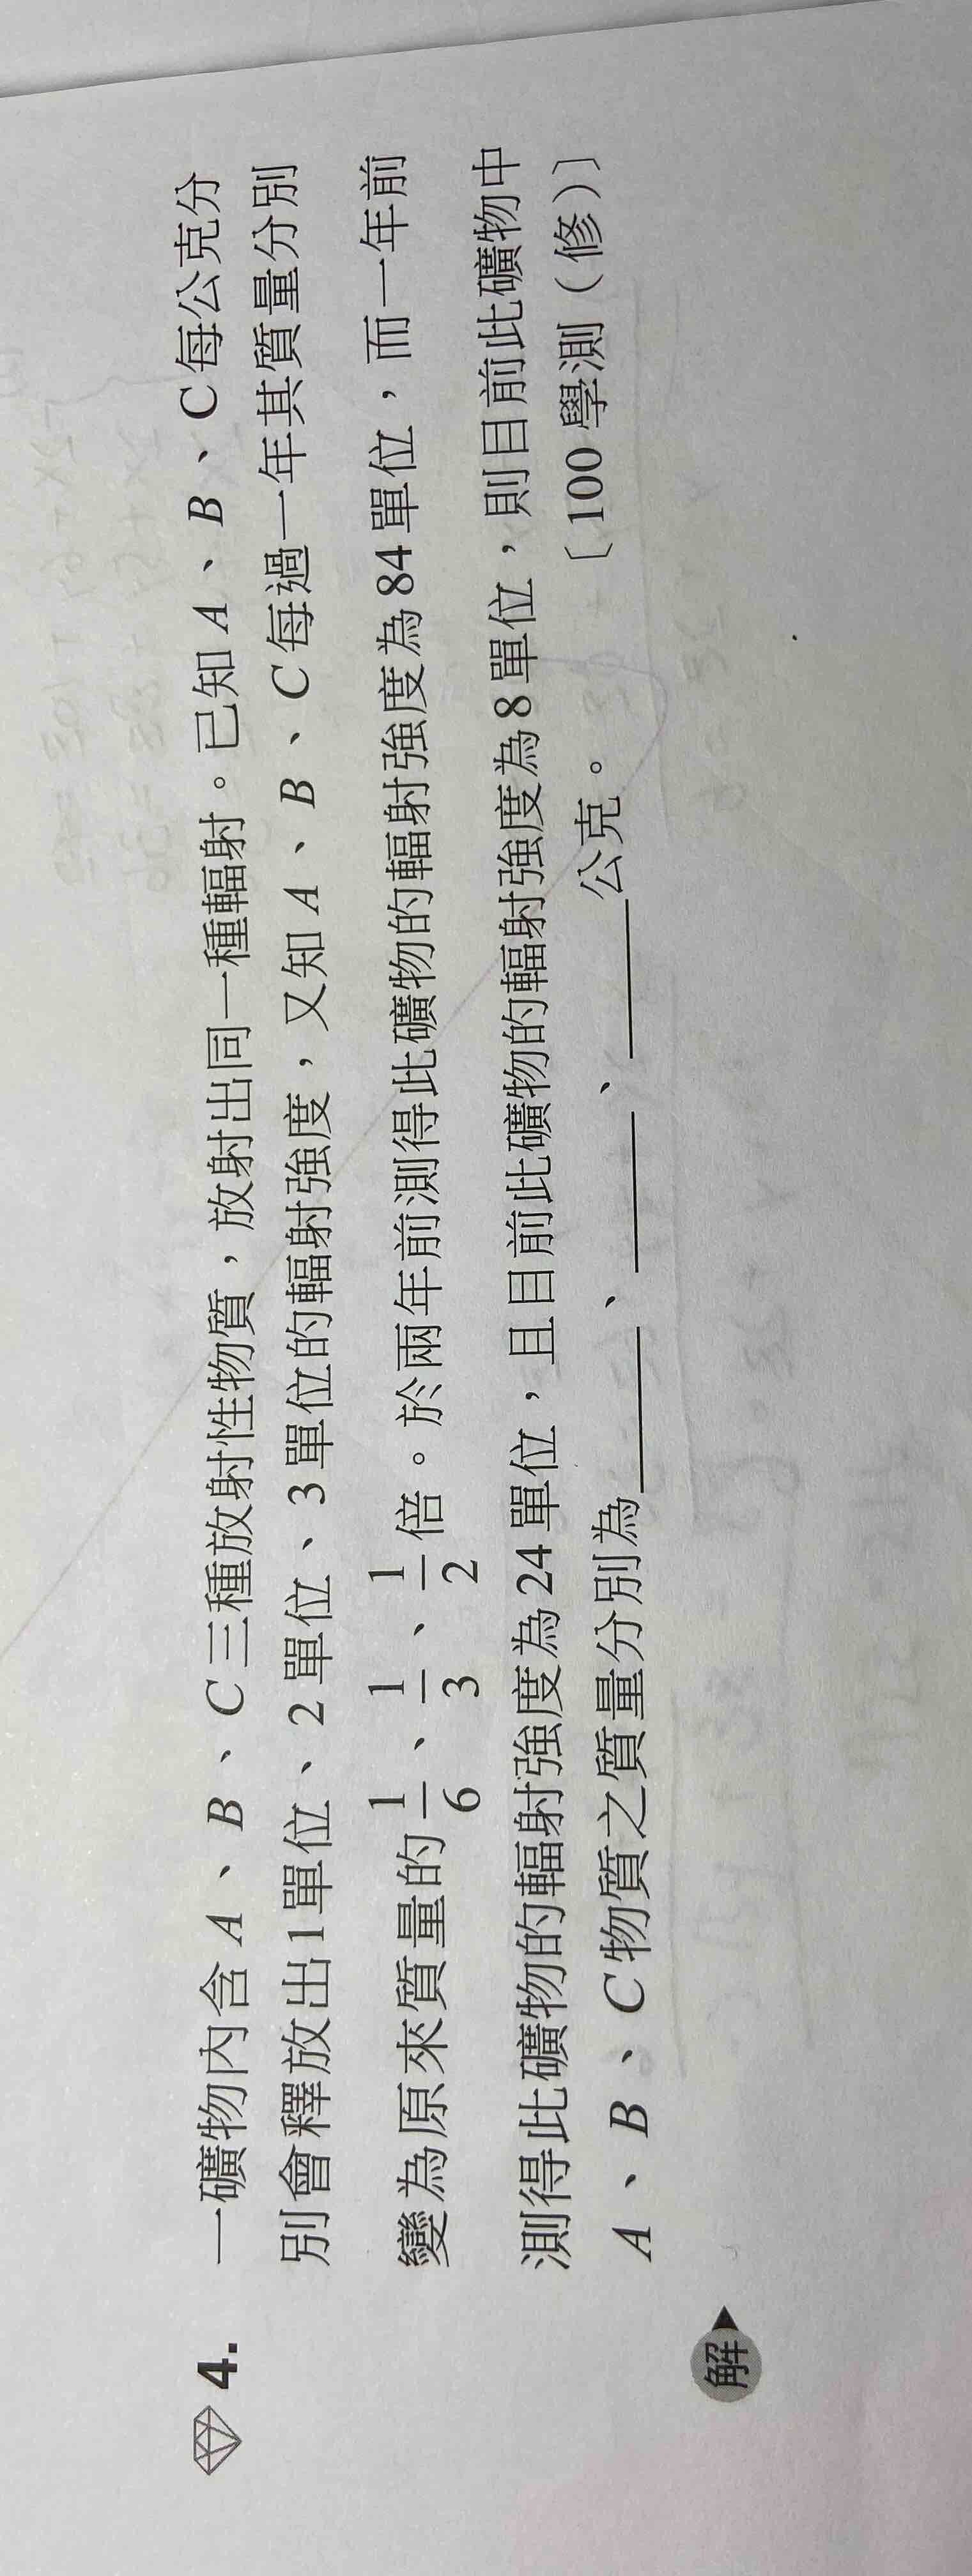 4. 一礦物內含 A、B、C 三種放射性物質，放射出同一種輻射。已知 A、B、C 每公克分
別會釋放出 1 單位、2 單位、3 單位的輻射強度，又知 A、B、C 每過一年其質量分別
變為原來質量的 1/6、1/3、1/2 倍。於兩年前測得此礦物的輻射強度為 84 單位，而一年前
測得此礦物的輻射強度為 24 單位，且目前此礦物的輻射強度為 8 單位，則目前此礦物中
A、B、C 物質之質量分別為______、______、______公克。 〔100 學測（修）〕
解